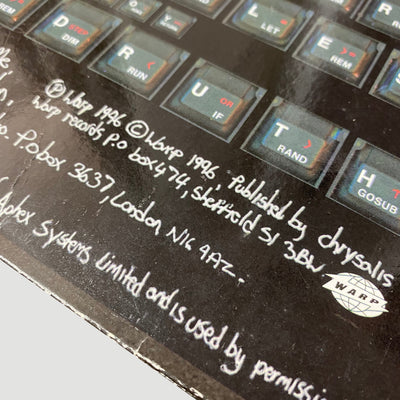 D STEP DIM
R < RUN
U OR IF
L = LET
E >= REM
T > RAND
H GOSUB
Ⓟ Warp 1996 © Warp 1996 Published by chrysalis
Warp records P.o box 474, Sheffield S1 3BW
P.o box 3637, London NIC 9AZ.
Aphex Systems Limited and is used by permissi
WARP